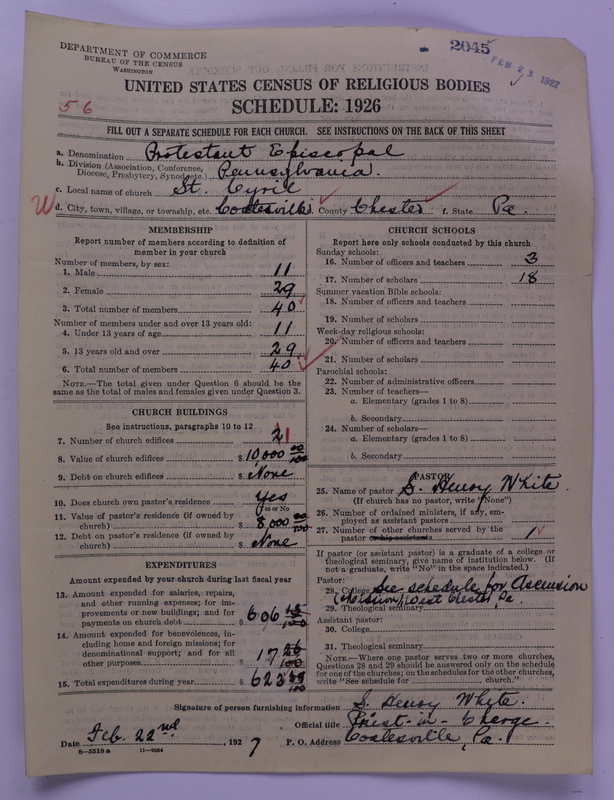 DEPARTMENT OF COMMERCE
BUREAU OF THE CENSUS
WASHINGTON
2045
FEB 23 1927
UNITED STATES CENSUS OF RELIGIOUS BODIES
56
SCHEDULE: 1926
FILL OUT A SEPARATE SCHEDULE FOR EACH CHURCH. SEE INSTRUCTIONS ON THE BACK OF THIS SHEET
a. Denomination Protestant Episcopal
b. Division (Association, Conference, Diocese, Presbytery, Synod, etc.) Pennsylvania.
c. Local name of church St. Cyril
W d. City, town, village, or township, etc. Coatesville. County Chester f. State Pa.
MEMBERSHIP
Report number of members according to definition of member in your church
Number of members, by sex:
1. Male 11
2. Female 29
3. Total number of members 40
Number of members under and over 13 years old:
4. Under 13 years of age 11
5. 13 years old and over 29
6. Total number of members 40
NOTE.—The total given under Question 6 should be the same as the total of males and females given under Question 3.
CHURCH BUILDINGS
See instructions, paragraphs 10 to 12
7. Number of church edifices 2 1
8. Value of church edifices $ 10,000 00/100
9. Debt on church edifices $ None
10. Does church own pastor's residence Yes
Yes or No
11. Value of pastor's residence (if owned by church) $ 8,000 00/100
12. Debt on pastor's residence (if owned by church) $ None
EXPENDITURES
Amount expended by your church during last fiscal year
13. For salaries, repairs, and other running expenses; for improvements or new buildings; and for payments on church debt $ 606
14. For benevolences, including home and foreign missions; for denominational support; and for all other purposes $ 17
15. Total expenditures during year $ 623
CHURCH SCHOOLS
Report here only schools conducted by this church
Sunday schools:
16. Number of officers and teachers 3
17. Number of scholars 18
Summer vacation Bible schools:
18. Number of officers and teachers
19. Number of scholars
Week-day religious schools:
20. Number of officers and teachers
21. Number of scholars
Parochial schools:
22. Number of administrative officers
23. Number of teachers—
a. Elementary (grades 1 to 8)
b. Secondary
24. Number of scholars—
a. Elementary (grades 1 to 8)
b. Secondary
PASTOR
25. Name of pastor S. Henry White.
(If church has no pastor, write "None")
26. Number of ordained ministers, if any, employed as assistant pastors
27. Number of other churches served by the pastor or his assistants 1
If pastor (or assistant pastor) is a graduate of a college or theological seminary, give name of institution below. (If not a graduate, write "No" in the space indicated.)
Pastor:
28. College See schedule for Ascension
(Mission) West Chester, Pa
29. Theological seminary
Assistant pastor:
30. College
31. Theological seminary
NOTE.—Where one pastor serves two or more churches, Questions 28 and 29 should be answered only on the schedule for one of the churches; on the schedules for the other churches, write "See schedule for church."
Signature of person furnishing information S. Henry White.
Official title Priest-in-Charge.
Date Feb. 22nd, 1927 P. O. Address Coatesville, Pa.
8—5518 a 11—9064